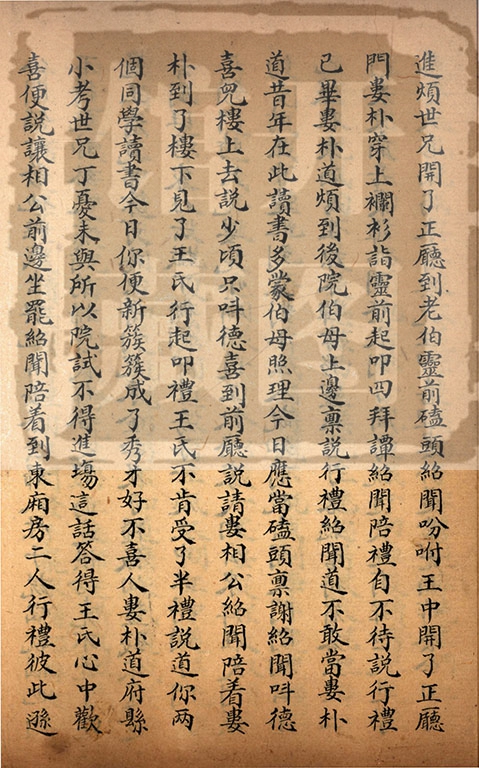 進煩世兄開了正廳到老伯靈前磕頭紹聞吩咐王中開了正廳
門婁朴穿上襴衫詣靈前起叩四拜譚紹聞陪禮自不待説行禮
已畢婁朴道煩到後院伯母上邊禀説行禮紹聞道不敢當婁朴
道昔年在此讀書多蒙伯母照理今日應當磕頭禀謝紹聞呌德
喜兒樓上去説少頃只呌德喜到前廳説請婁相公紹聞陪着婁
朴到了樓下見了王氏行起叩禮王氏不肯受了半禮説道你兩
個同學讀書今日你便新簇簇成了秀才好不喜人婁朴道府縣
小考世兄丁憂未與所以院試不得進塲這話答得王氏心中歡
喜便説讓相公前邊坐罷紹聞陪着到東廂房二人行禮彼此遜